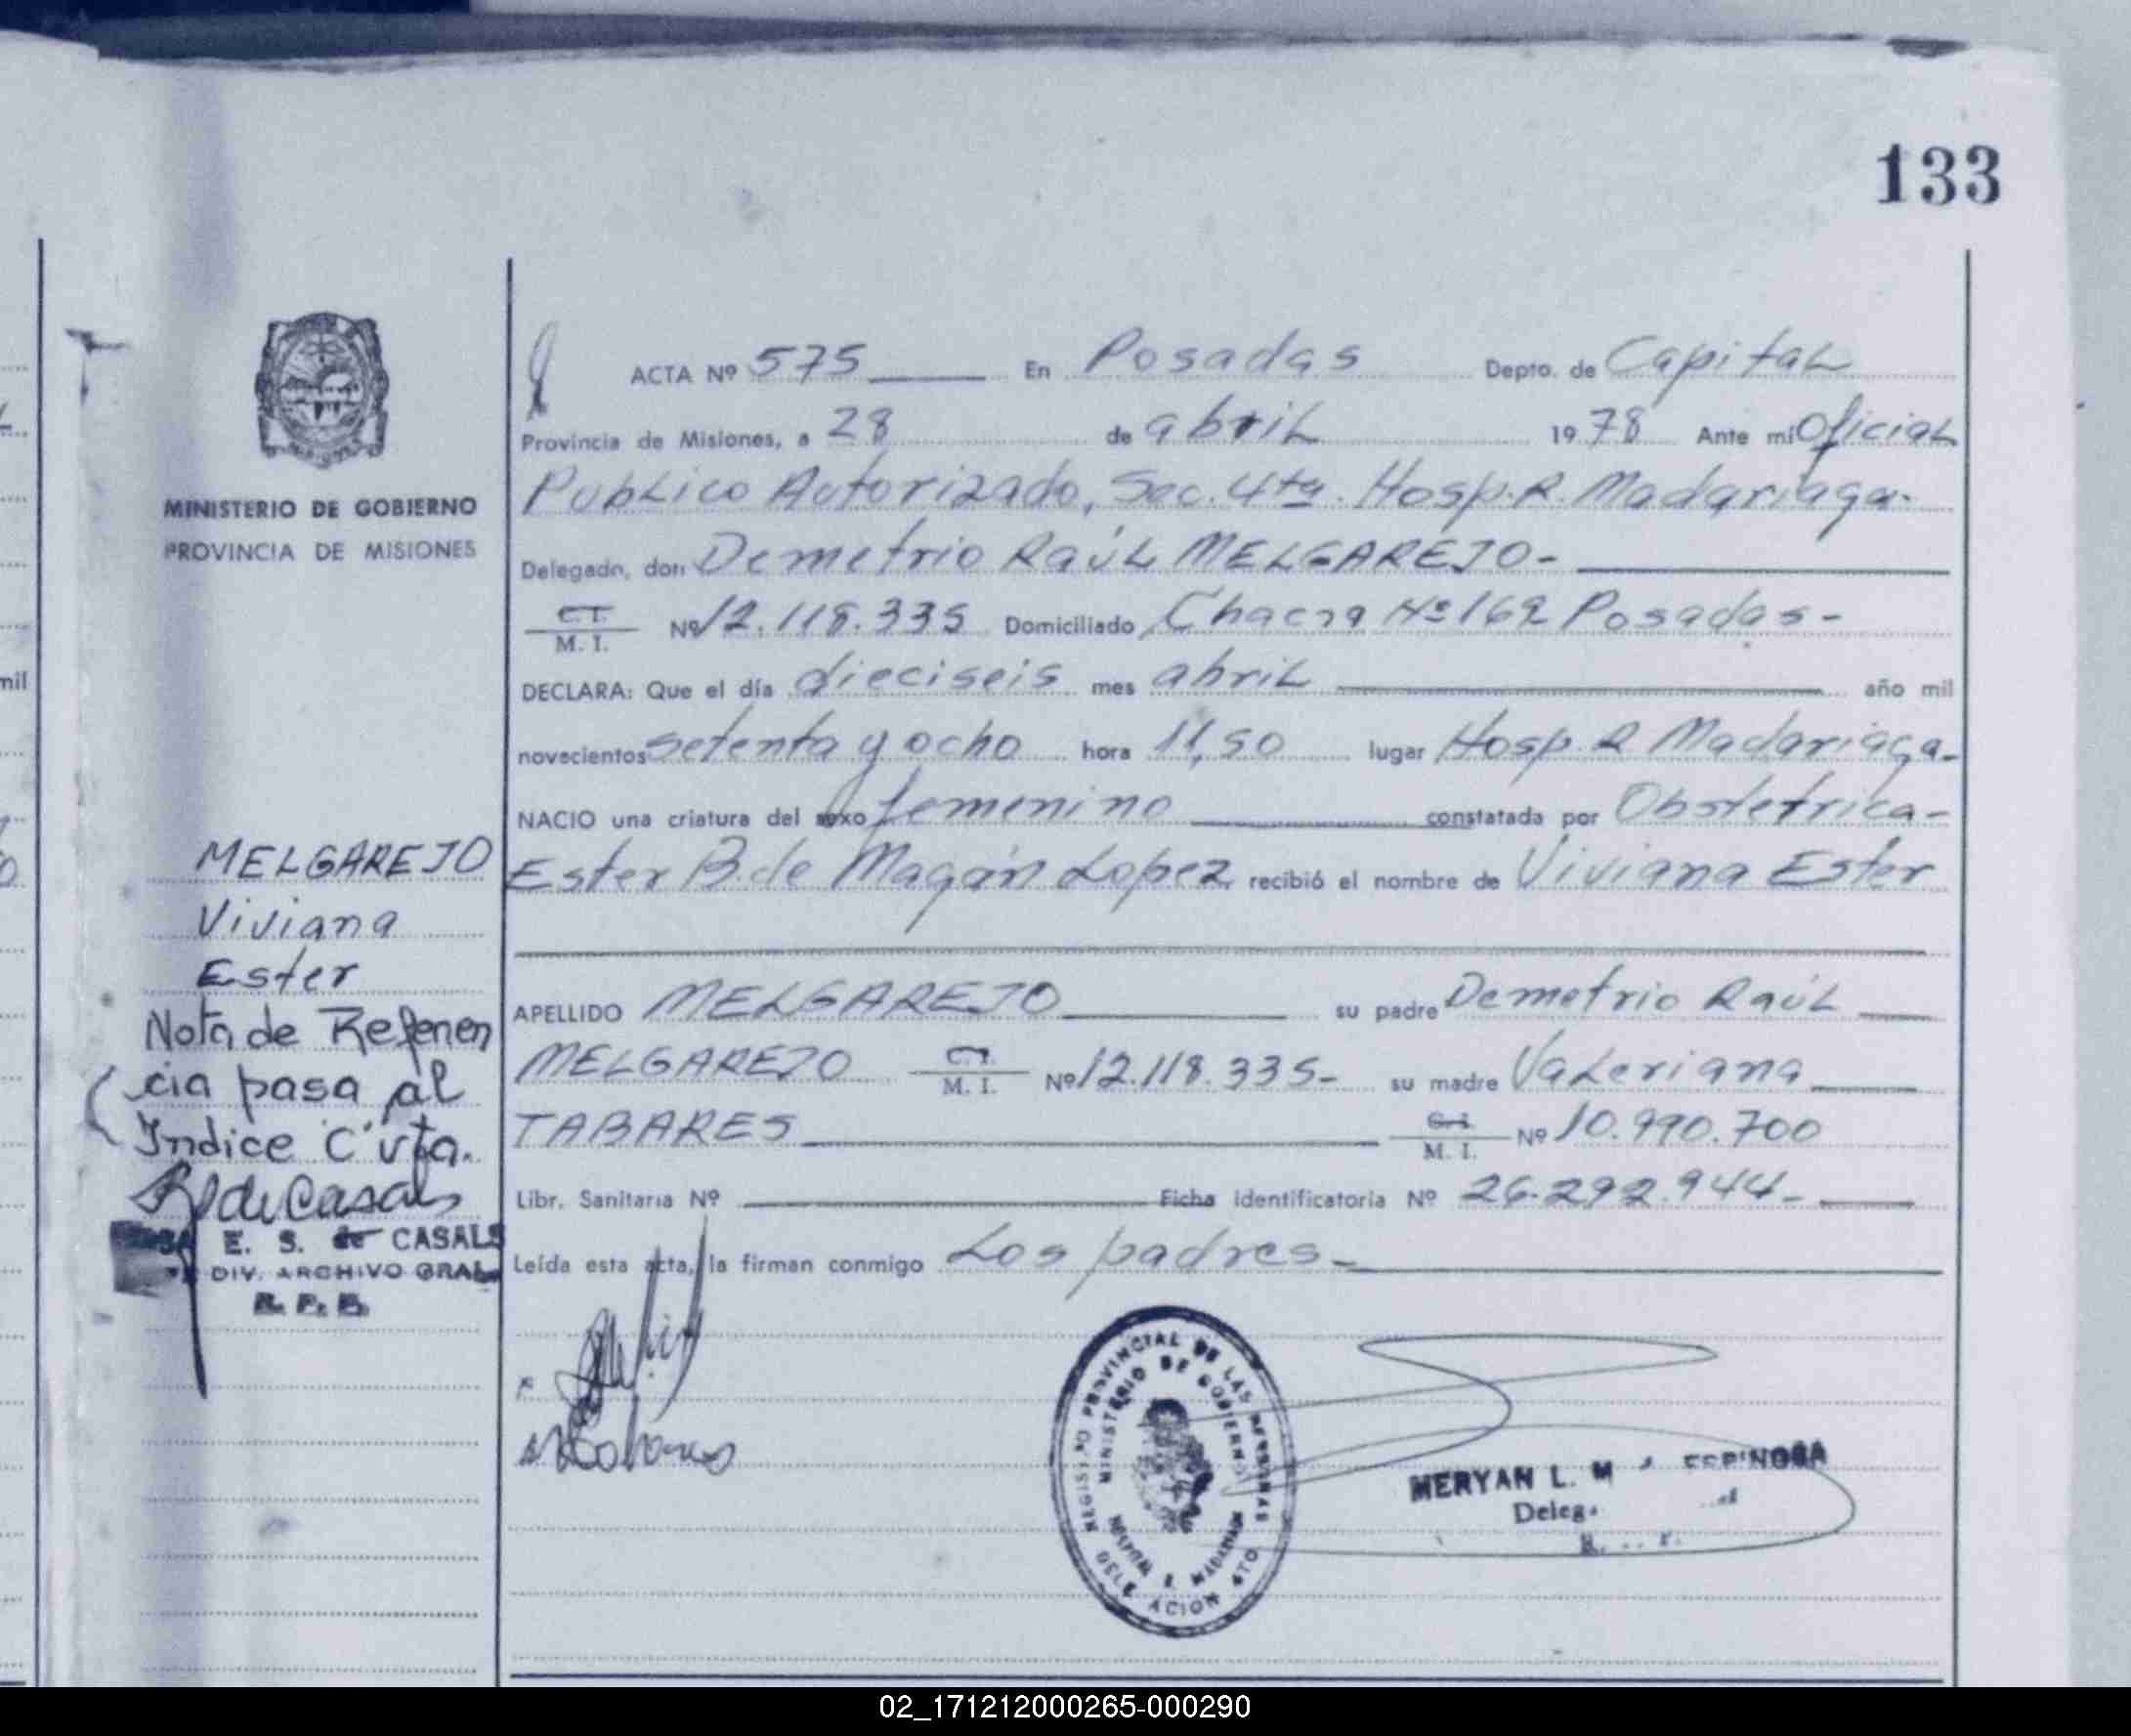 133
ACTA Nº 575 En Posadas Depto. de Capital
Provincia de Misiones, a 28 de abril 1978 Ante mi Oficial
Publico Autorizado, Sec. 4ta. Hosp. R. Madariaga.
Delegado, don Demetrio Raúl MELGAREJO-
C.I. M. I. Nº 12.118.335 Domiciliado Chacra Nº 162 Posadas-
DECLARA: Que el día dieciseis mes abril año mil
novecientos setenta y ocho hora 11,50 lugar Hosp. R Madariaga-
NACIO una criatura del sexo femenino constatada por Obstetrica-
Ester B. de Magán Lopez, recibió el nombre de Viviana Ester
APELLIDO MELGAREJO su padre Demetrio Raúl
MELGAREJO C.I. M. I. Nº 12.118.335- su madre Valeriana
TABARES C.I. M. I. Nº 10.990.700
Libr. Sanitaria Nº Ficha identificatoria Nº 26.292.944-
Leída esta acta, la firman conmigo Los padres-
MINISTERIO DE GOBIERNO
PROVINCIA DE MISIONES
MELGAREJO
Viviana
Ester
Nota de Referen
cia pasa al
Indice C" vta.
de Casals
E. S. de CASALS
DIV. ARCHIVO GRAL
R. P. P.
REGISTRO PROVINCIAL DE LAS PERSONAS
MINISTERIO DE GOBIERNO
HOSPITAL R. MADARIAGA
DELEGACION 4TO
MERYAN L. M ESPINOSA
Deleg.
mil
02_171212000265-000290